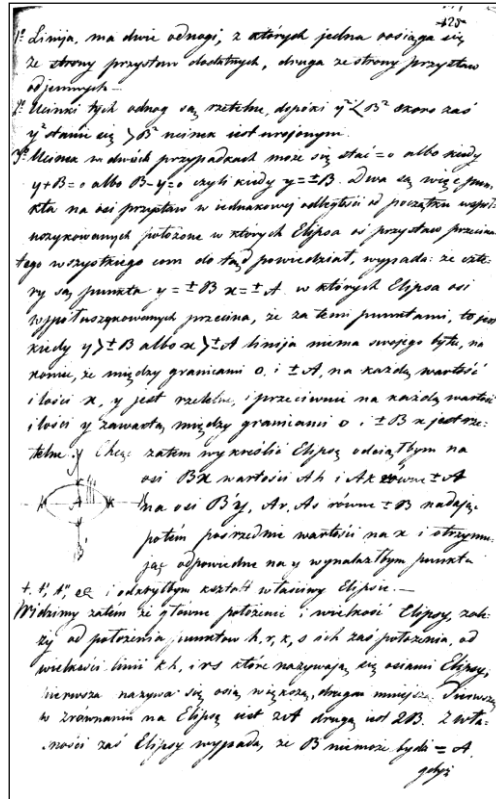 425
1º Linija, ma dwie odnogi, z których jedna rosciąga się
ze strony przystaw dodatnych, druga ze strony przystaw
odjemnych
2º Ucinki tych odnog są rzetelne, dopóki y² < B² skoro zaś
y² stanie się > B² ucinek iest urojonym.
3º Ucinek w dwóch przypadkach może się stać = 0 albo kiedy
y+B=0 albo B-y=0 czyli kiedy y=±B. Dwa są więc pun-
kta na osi przystaw w iednakowey odległości od początku współ
uszykowanych położone w których Elipsa oś przystaw przecina
tego wszystkiego com do tąd powiedział, wypada: że czte-
ry są punkta y=±B x=±A. w których Elipsa osi
współuszykowanych przecina, że za temi punktami, to jest
kiedy y>±B albo x>±A linija niema swojego bytu, na
koniec, że między granicami 0. i ±A, na każdą wartość
ilości x, y jest rzetelne, i przeciwnie na każdą wartość
ilości y zawartą między granicami 0 i ±B x jest rze-
telne. Chcąc zatem wykreślić Elipsę odciąłbym na
osi Bx wartości Ah i Ak równe ±A
na osi By, Ar, As równe ±B nadając
potém pośrzednie wartości na x i otrzymu-
jąc odpowiedne na y wynalazłbym punkta
t, t', t'', etc i odkryłbym kształt właściwy Elipsie.—
Widzimy zatem że główne położenie i wielkość Elipsy, zale-
ży od położenia punktow h, r, k, s ich zaś położenia, od
wielkości linii kh, i rs które nazywają się osiami Elipsy,
pierwsza nazywa się osią większą, druga mniejszą. Pierwszą
w zrównaniu na Elipsę iest 2A drugą iest 2B. Z wła-
sności zaś Elipsy wypada, że B niemoże bydź = A.
gdyż